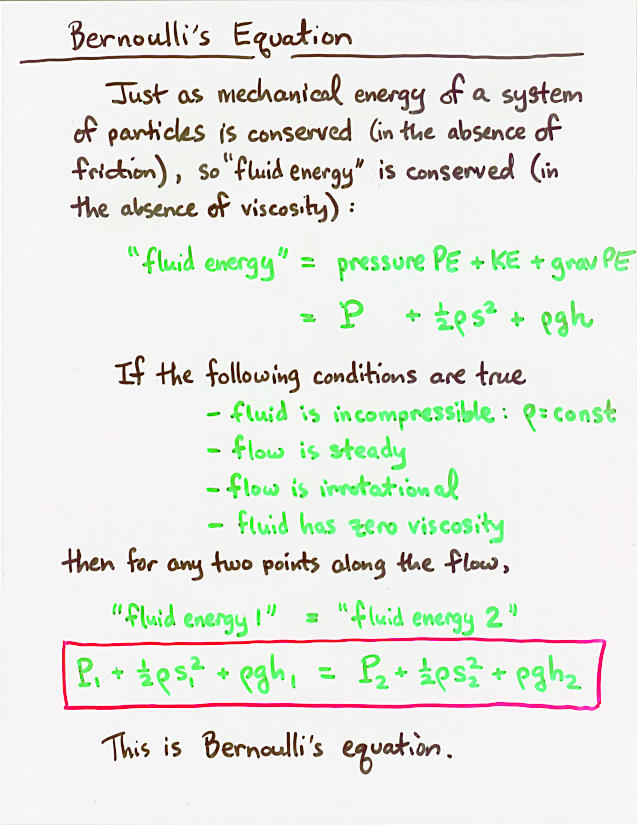 Bernoulli's Equation
Just as mechanical energy of a system
of particles is conserved (in the absence of
friction), so "fluid energy" is conserved (in
the absence of viscosity):
"fluid energy" = pressure PE + KE + grav PE
= P + ½ρs² + ρgh
If the following conditions are true
- fluid is incompressible: ρ=const
- flow is steady
- flow is irrotational
- fluid has zero viscosity
then for any two points along the flow,
"fluid energy 1" = "fluid energy 2"
P₁ + ½ρs₁² + ρgh₁ = P₂ + ½ρs₂² + ρgh₂
This is Bernoulli's equation.